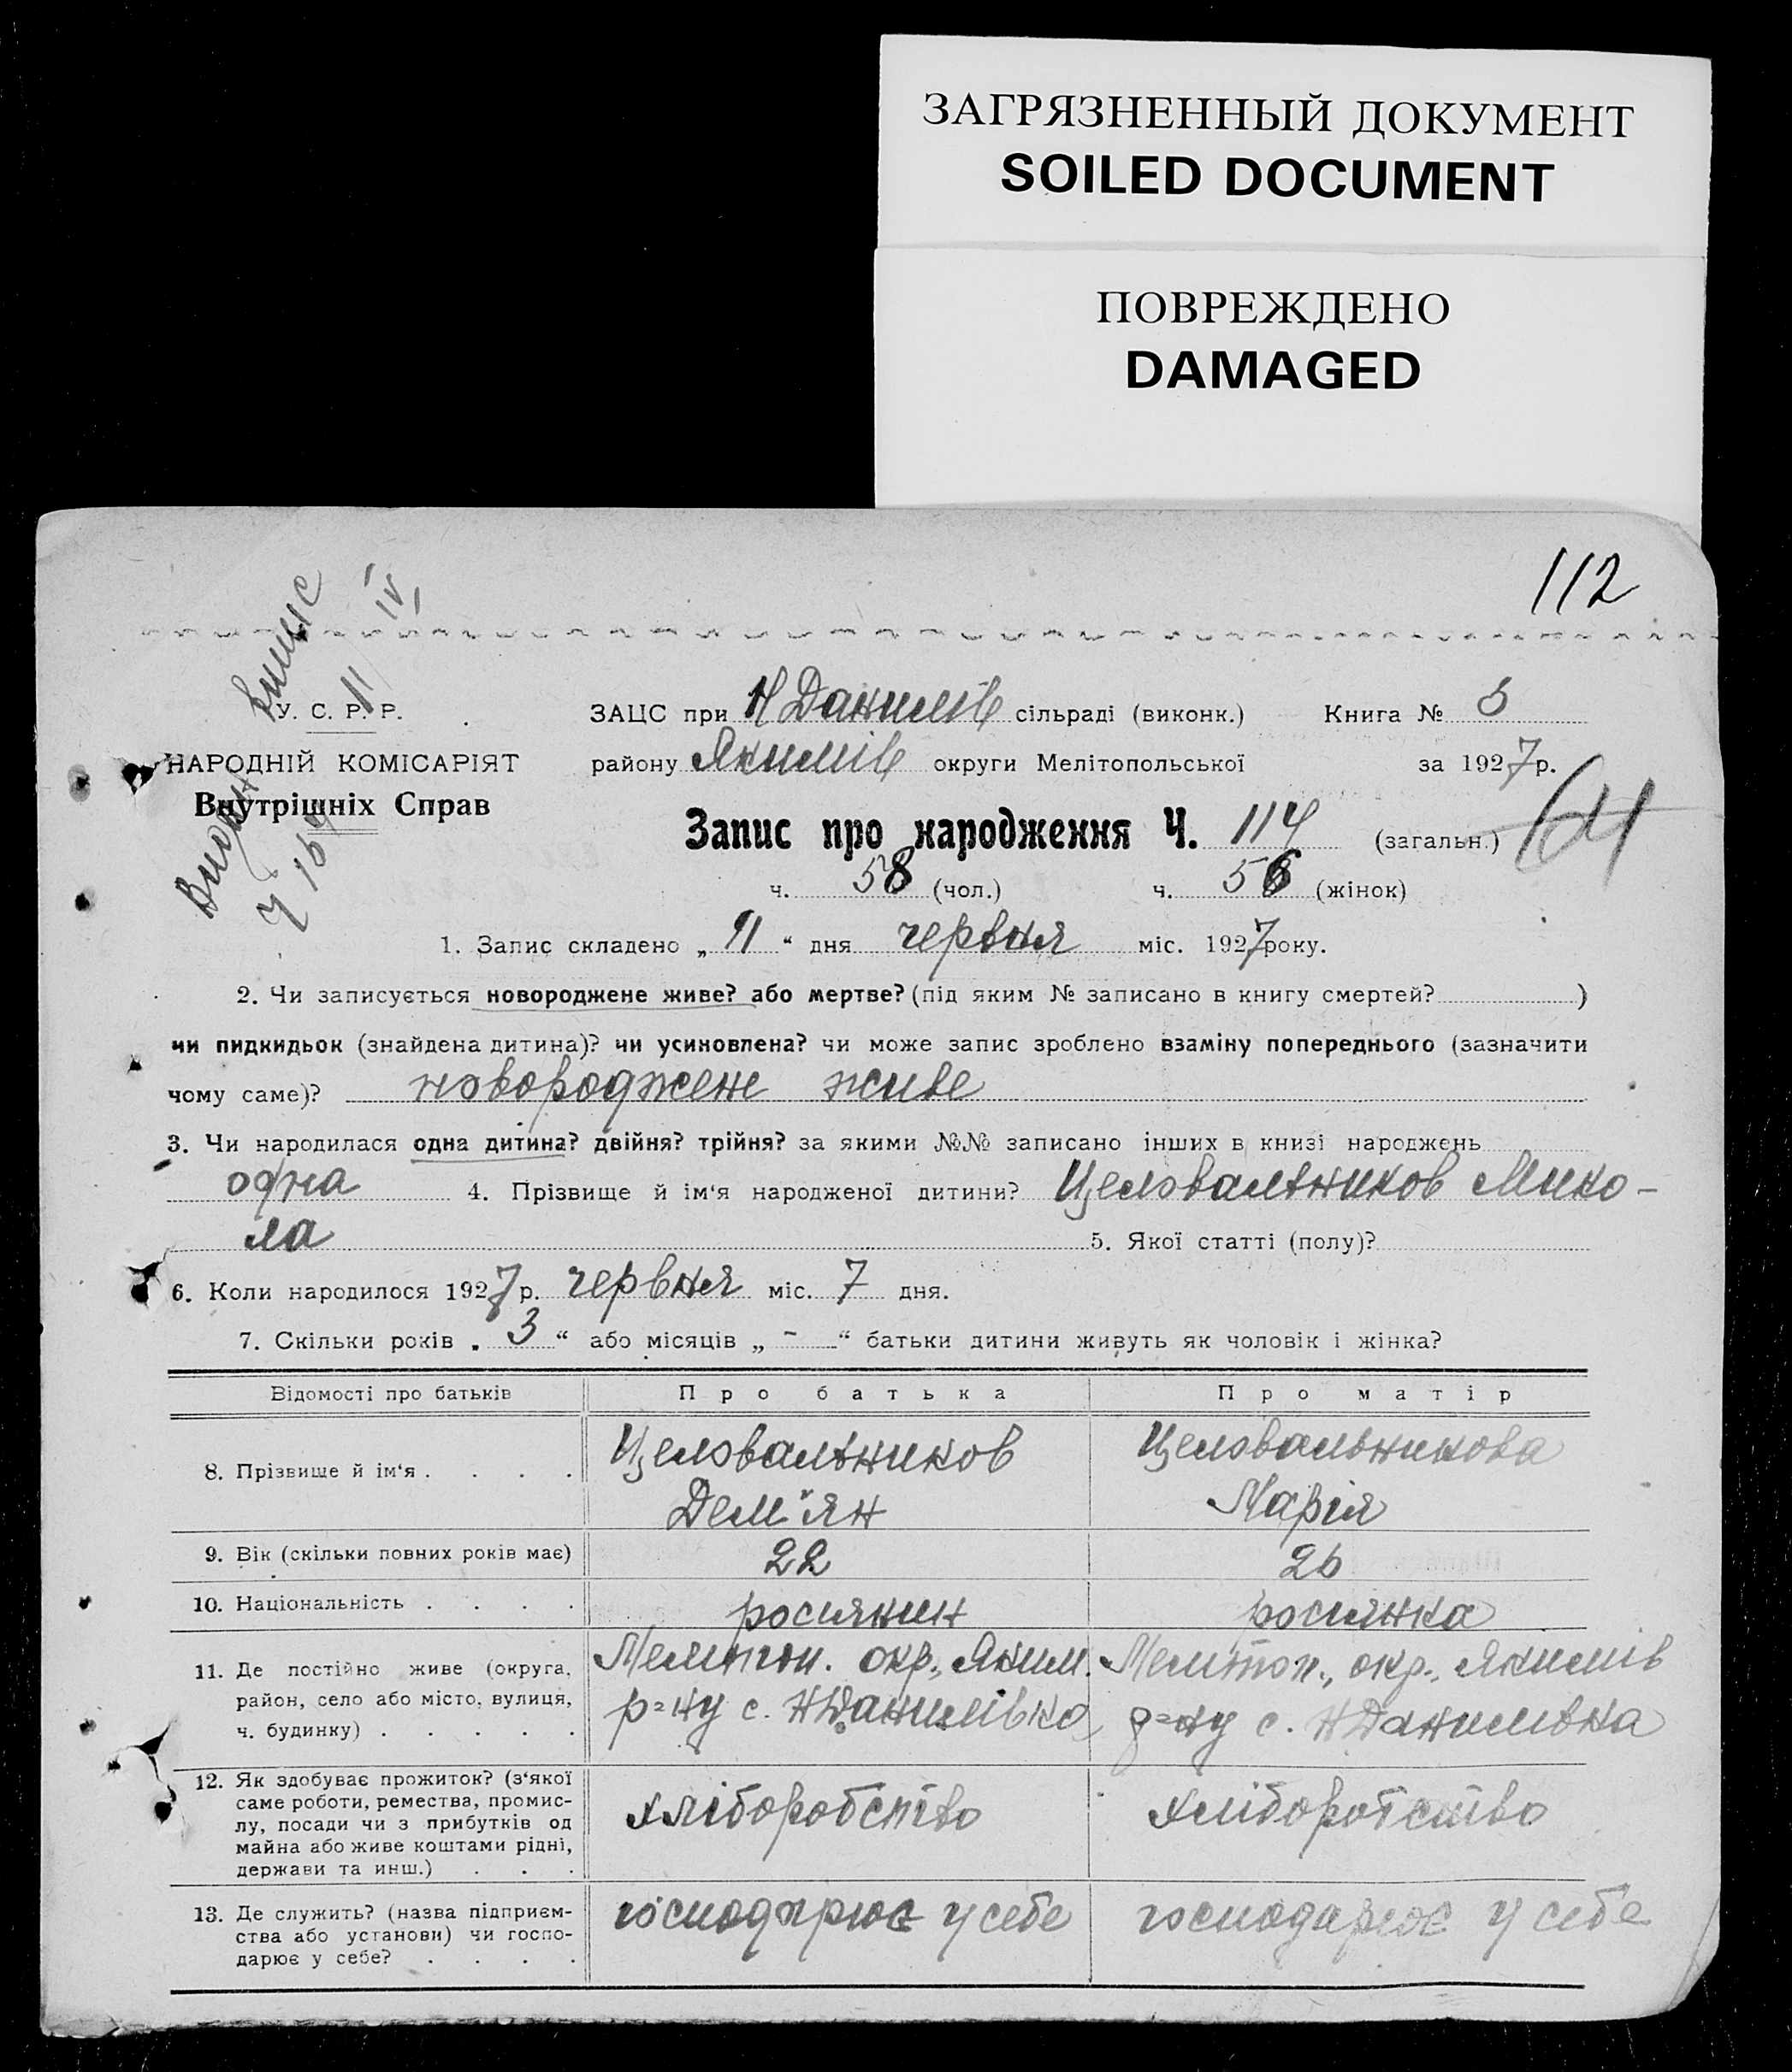 ЗАГРЯЗНЕННЫЙ ДОКУМЕНТ
SOILED DOCUMENT
ПОВРЕЖДЕНО
DAMAGED
112
Випис
11/IV
У. С. Р. Р.
НАРОДНІЙ КОМІСАРІЯТ
Внутрішніх Справ
ЗАЦС при Н Данилів сільраді (виконк.) Книга №
району Якимів округи Мелітопольської за 1927р.
Запис про народження Ч. 114 (загальн.)
ч. 58 (чол.) ч. 56 (жінок)
1. Запис складено „11“ дня червня міс. 1927року.
2. Чи записується новороджене живе? або мертве? (під яким № записано в книгу смертей? )
чи пидкидьок (знайдена дитина)? чи усиновлена? чи може запис зроблено взаміну попереднього (зазначити
чому саме)? новороджене живе
3. Чи народилася одна дитина? двійня? трійня? за якими №№ записано інших в книзі народжень
одна 4. Прізвище й ім‘я народженої дитини? Целовальников Мико-
ла 5. Якої статті (полу)?
6. Коли народилося 1927р. червня міс. 7 дня.
7. Скільки років „3“ або місяців „-“ батьки дитини живуть як чоловік і жінка?
Відомості про батьків Про батька Про матір
8. Прізвище й ім‘я . . . . Целовальников Целовальникова
Дем'ян Марія
9. Вік (скільки повних років має) 22 26
10. Національність . . . . росиянин росиянка
11. Де постійно живе (округа, Мелітоп. окр., Яким. Мелітоп., окр., Якимів
район, село або місто, вулиця, р=ну с. НДанилівка р=ну с. НДанилівка
ч. будинку) . . . . .
12. Як здобуває прожиток? (з‘якої
саме роботи, ремества, промис- хліборобство хліборобство
лу, посади чи з прибутків од
майна або живе коштами рідні,
держави та инш.) . . .
13. Де служить? (назва підприєм- господарює у себе господарює у себе
ства або установи) чи госпо-
дарює у себе? . . . .